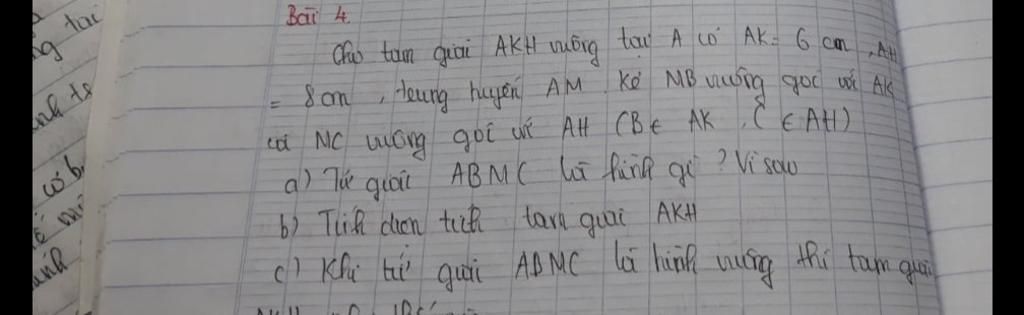 Bài 4.
Cho tam giác AKH vuông tại A có AK = 6 cm, AH
= 8cm, trung tuyến AM. Kẻ MB vuông góc với AK
và MC vuông góc với AH (B ∈ AK, C ∈ AH)
a) Tứ giác ABMC là hình gì? Vì sao
b) Tính diện tích tam giác AKH
c) Khi tứ giác ABMC là hình vuông thì tam giác